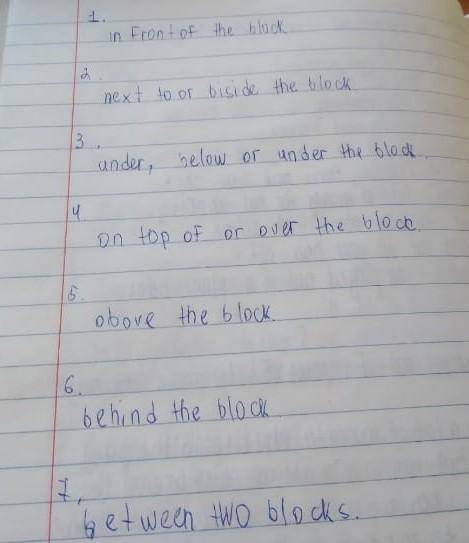 1.
in front of the block
2.
next to or biside the block
3.
under, below or under the block.
4
on top of or over the block.
5.
above the block.
6.
behind the block
7.
between two blocks.